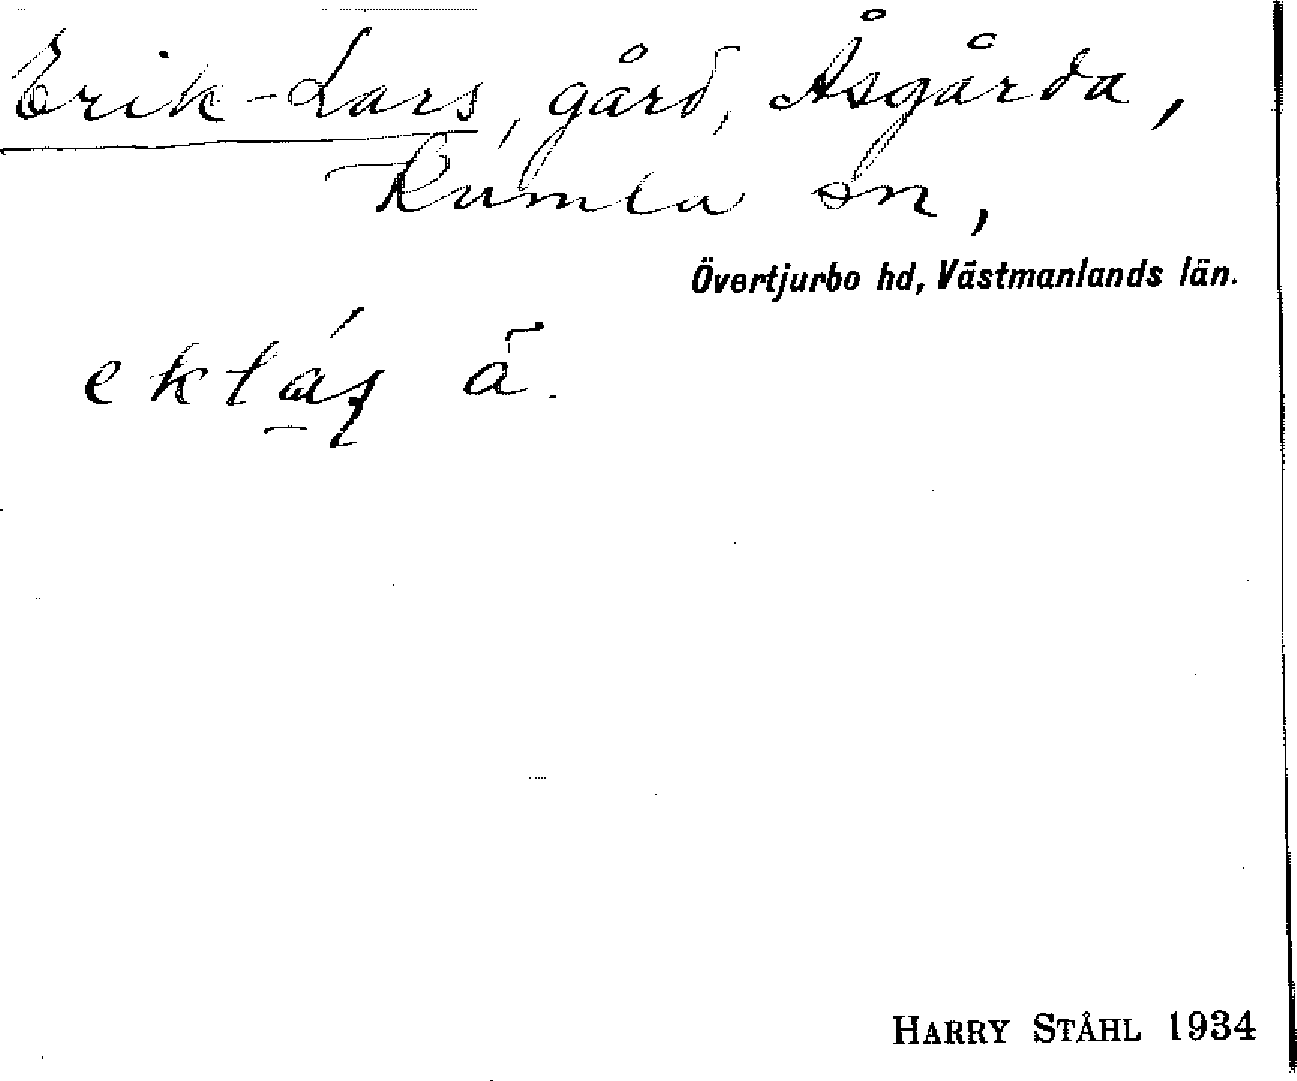 Erik-Lars, gård, Åsgårda,
Kumla sn,
Övertjurbo hd, Västmanlands län.
HARRY STÅHL 1934